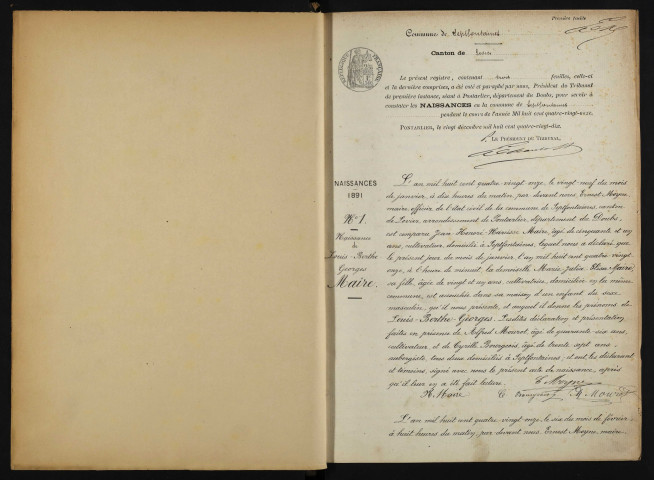 Première feuille
Commune de Septfontaines
Canton de Levier
RÉPUBLIQUE FRANÇAISE
Le présent registre, contenant feuilles, celle-ci
et la dernière comprises, a été coté et paraphé par nous, Président du Tribunal
de première instance, séant à Pontarlier, département du Doubs, pour servir à
constater les NAISSANCES en la commune de Septfontaines
pendant le cours de l'année Mil huit cent quatre-vingt-onze.
PONTARLIER, le vingt décembre mil huit cent quatre-vingt-dix.
LE PRÉSIDENT DU TRIBUNAL,
NAISSANCES
1891
N° 1.
Naissance
de
Louis-Berthe
Georges
Maire.
L'an mil huit cent quatre-vingt onze, le vingt neuf du mois
de janvier, à dix heures du matin, par devant nous, Ernest Moyne
maire, officier de l'état civil de la commune de Septfontaines, canton
de Levier, arrondissement de Pontarlier, département du Doubs,
est comparu Jean-Honoré-Narcisse Maire, âgé de cinquante et un
ans, cultivateur, domicilié à Septfontaines, lequel nous a déclaré que
le présent jour du mois de janvier, l'an mil huit cent quatre-vingt
onze, à l'heure de minuit, la demoiselle Marie Julie Maire,
sa fille, âgée de vingt et un ans, cultivatrice, domiciliée en la même
commune, est accouchée, dans sa maison d'un enfant du sexe
masculin, qu'il nous présente, et auquel il donne les prénoms de
Louis-Berthe-Georges. Lesdites déclaration et présentation
faites en présence de Alfred Mourot, âgé de quarante-six ans,
cultivateur, et de Cyrille Bourgeois, âgé de trente sept ans,
aubergiste, tous deux domiciliés à Septfontaines; et ont les déclarant
et témoins, signé avec nous le présent acte de naissance, après
qu'il leur en a été fait lecture. E. Moyne
N. Maire C. Bourgeois A. Mourot
L'an mil huit cent quatre vingt onze, le six du mois de février
à huit heures du matin, par devant nous Ernest Moyne, maire